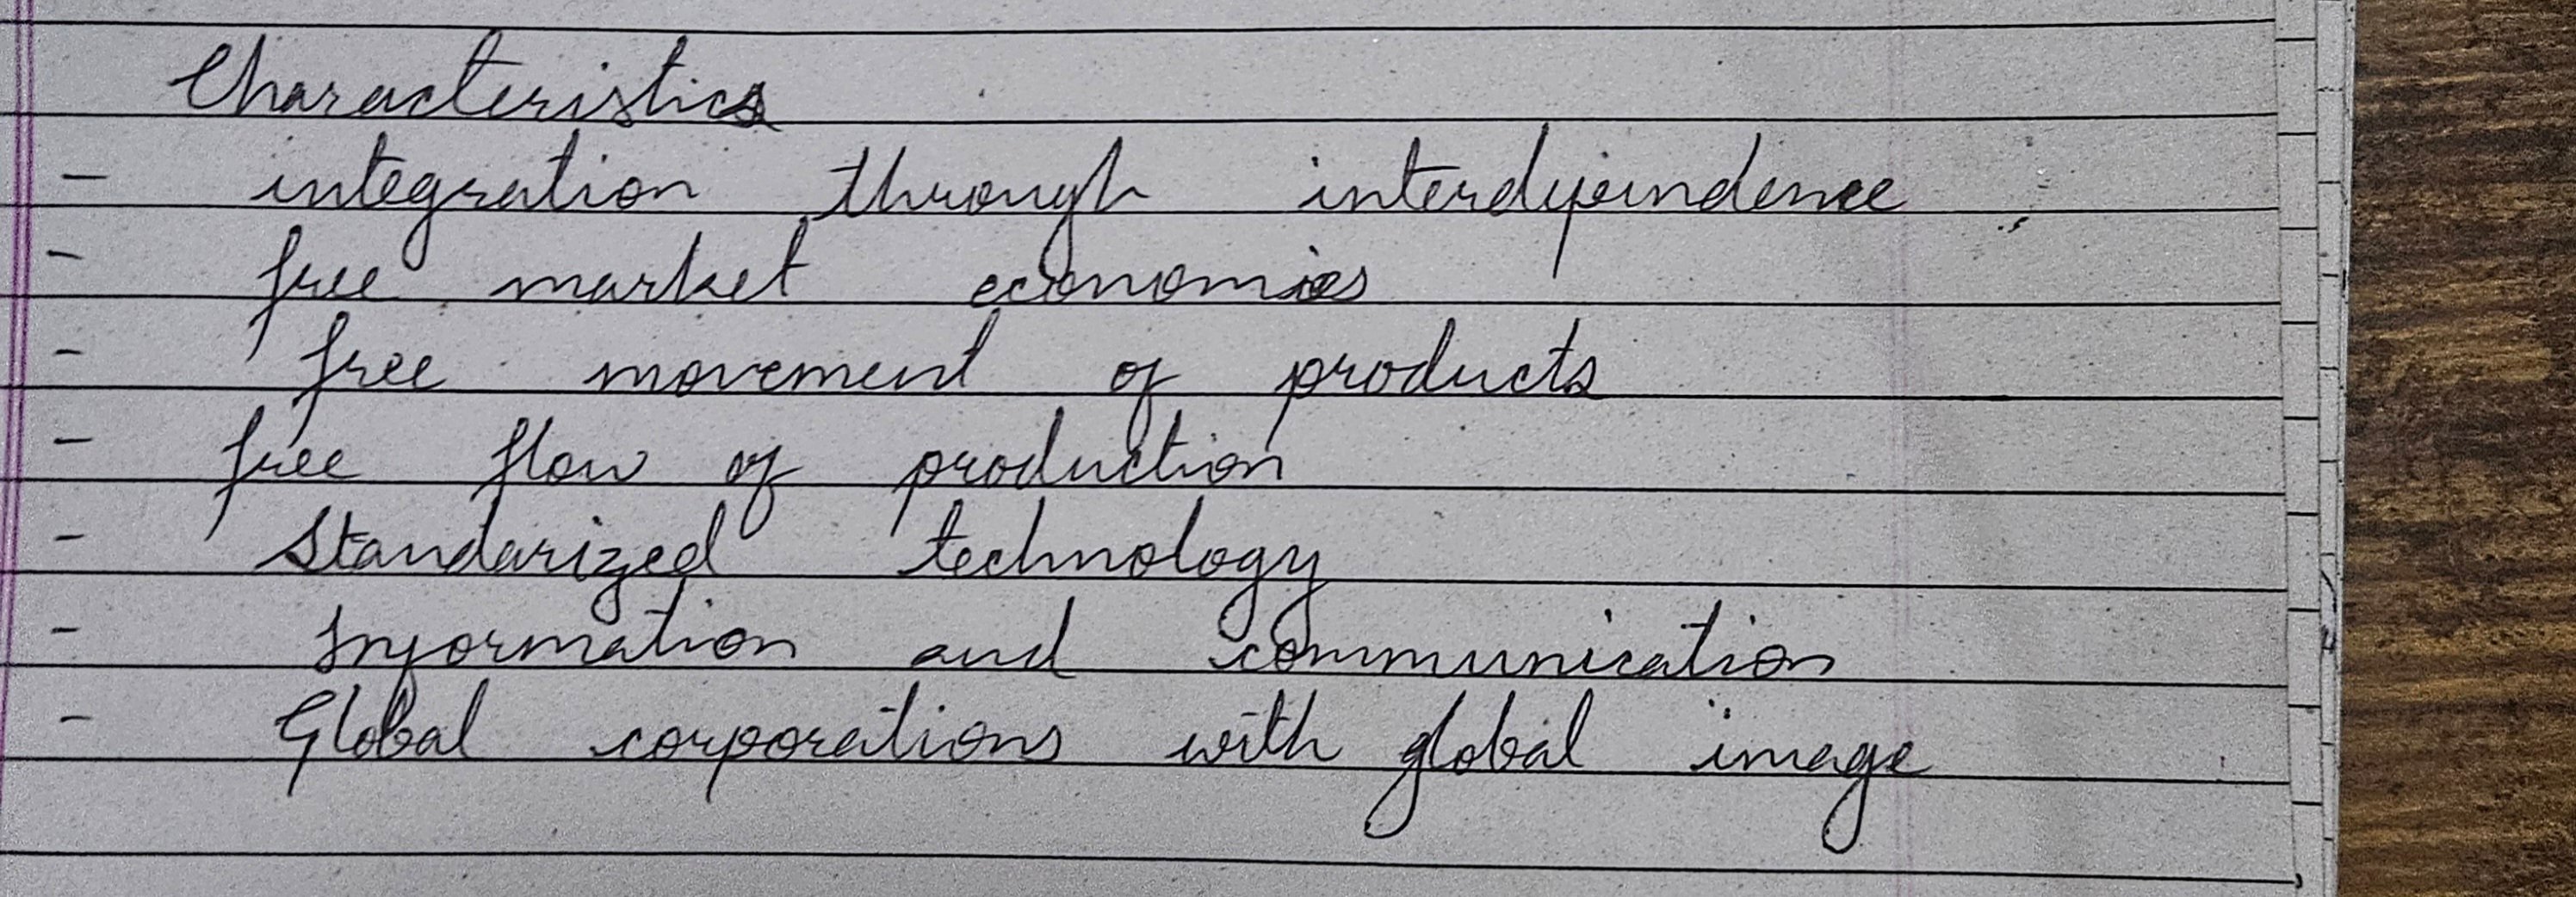 Characteristics
- integration through interdependence
- free market economies
- free movement of products
- free flow of production
- Standarized technology
- Information and communication
- Global corporations with global image